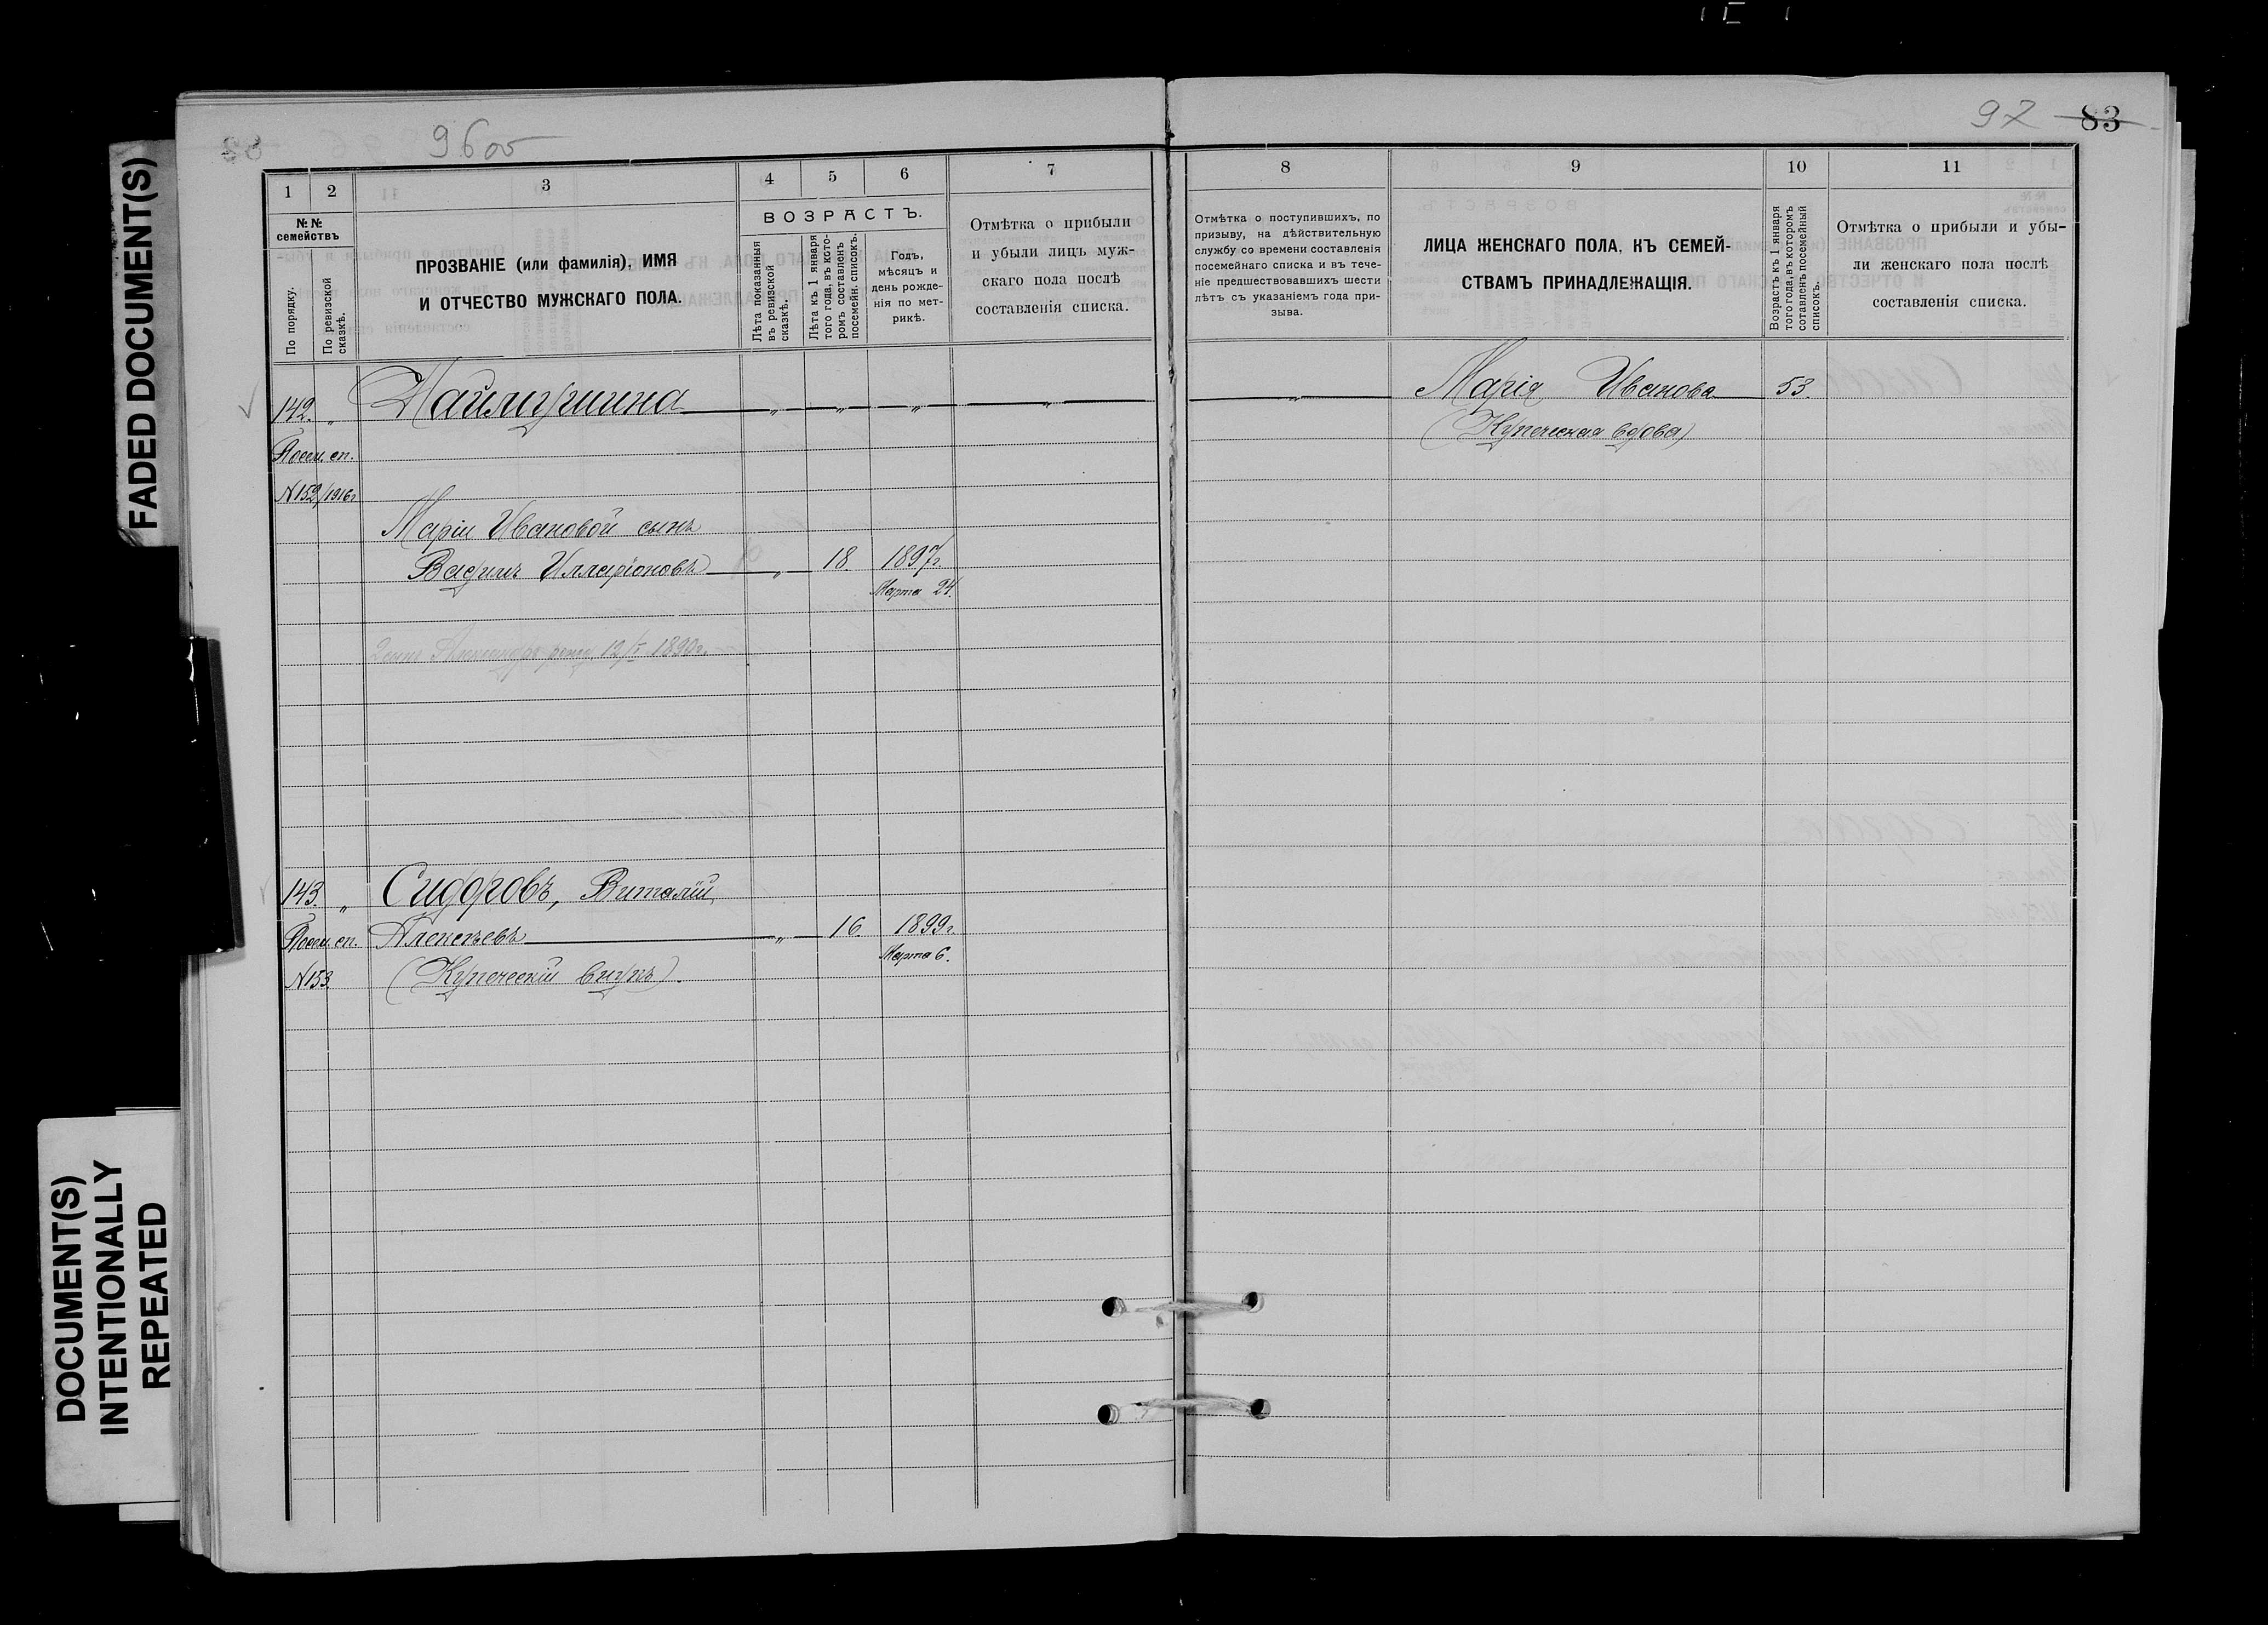 FADED DOCUMENT(S)
DOCUMENT(S)
INTENTIONALLY
REPEATED
96 об
97 83
1 2 3 4 5 6 7
№ №
семействъ
По порядку.
По ревизской
сказкѣ.
ПРОЗВАНІЕ (или фамилія), ИМЯ
И ОТЧЕСТВО МУЖСКАГО ПОЛА.
ВОЗРАСТЪ.
Лѣта показанныя
въ ревизской
сказкѣ.
Лѣта къ 1 января
того года, въ кото-
ромъ составленъ
посемейн. списокъ.
Годъ,
мѣсяцъ и
день рожде-
нія по мет-
рикѣ.
Отмѣтка о прибыли
и убыли лицъ муж-
скаго пола послѣ
составленія списка.
142. „
Посем. сп.
№ 152/1916г
Маріи Ивановой сынъ
Вадимъ Илларіоновъ „ 18 1897г.
Марта 24.
143. „ Сидоровъ, Виталій
Посем. сп. Алексѣевъ „ 16 1899г.
Марта 6.
№ 153. (Купеческій внукъ).
8 9 10 11
Отмѣтка о поступившихъ, по
призыву, на дѣйствительную
службу со времени составленія
посемейнаго списка и въ тече-
ніе предшествовавшихъ шести
лѣтъ съ указаніемъ года при-
зыва.
ЛИЦА ЖЕНСКАГО ПОЛА, КЪ СЕМЕЙ-
СТВАМЪ ПРИНАДЛЕЖАЩІЯ.
Возрастъ къ 1 января
того года, въ которомъ
сотавленъ посемейный
списокъ.
Отмѣтка о прибыли и убы-
ли женскаго пола послѣ
составленія списка.
„ Марія Иванова 53.
(Купеческая вдова)